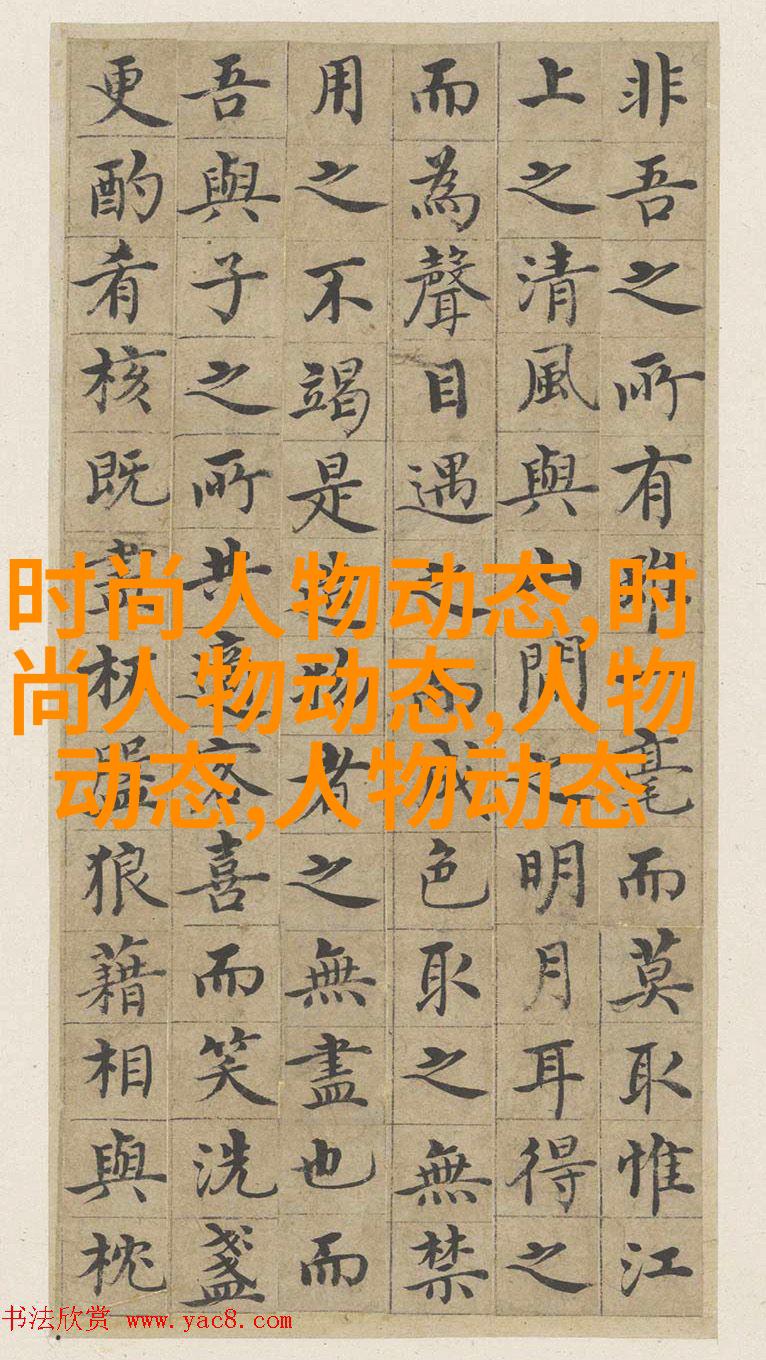 非吾之所有雖毫而莫取惟江
上之清風與山間之明月耳得之
而為聲目遇之而成色取之無禁
用之不竭是造物者之無盡也而
吾與子之所共適客喜而笑洗盞
更酌肴核既盡杯盤狼藉相與枕
时尚人物动态,时
尚人物动态,人物
动态,人物动态
书法欣赏 www.yac8.com